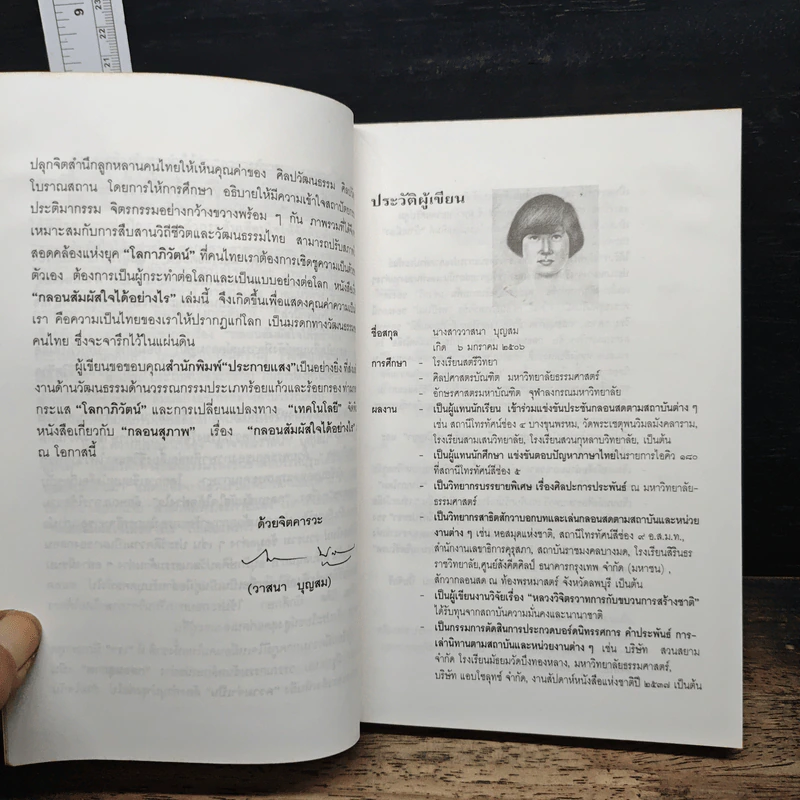 9
21 22 23
ปลุกจิตสำนึกลูกหลานคนไทยให้เห็นคุณค่าของ ศิลปวัฒนธรรม
โบราณสถาน โดยการให้การศึกษา อธิบายให้มีความเข้าใจ
ประติมากรรม จิตรกรรมอย่างกว้างขวางพร้อม ๆ กัน
เหมาะสมกับการสืบสานวิถีชีวิตและวัฒนธรรมไทย สามารถปรับ
สอดคล้องแห่งยุค “โลกาภิวัตน์” ที่คนไทยเราต้องการเชิดชูความเป็น
ตัวเอง ต้องการเป็นผู้กระทำต่อโลกและเป็นแบบอย่างต่อโลก
“กลอนสัมผัสใจได้อย่างไร” เล่มนี้ จึงเกิดขึ้นเพื่อแสดงคุณค่า
เรา คือความเป็นไทยของเราให้ปรากฏแก่โลก เป็นมรดกทางวัฒนธรรม
คนไทย ซึ่งจะจารึกไว้ในแผ่นดิน
ผู้เขียนขอขอบคุณสำนักพิมพ์“ประกายแสง”เป็นอย่างยิ่ง
งานด้านวัฒนธรรมด้านวรรณกรรมประเภทร้อยแก้วและร้อยกรอง
กระแส “โลกาภิวัตน์” และการเปลี่ยนแปลงทาง “เทคโนโลยี”
หนังสือเกี่ยวกับ “กลอนสุภาพ” เรื่อง “กลอนสัมผัสใจได้อย่างไร”
ณ โอกาสนี้
ด้วยจิตคารวะ
(วาสนา บุญสม)
ประวัติผู้เขียน
ชื่อสกุล นางสาววาสนา บุญสม
เกิด ๖ มกราคม ๒๕๐๖
การศึกษา - โรงเรียนสตรีวิทยา
- ศิลปศาสตรบัณฑิต มหาวิทยาลัยธรรมศาสตร์
- อักษรศาสตรมหาบัณฑิต จุฬาลงกรณมหาวิทยาลัย
ผลงาน - เป็นผู้แทนนักเรียน เข้าร่วมแข่งขันประชันกลอนสดตามสถาบันต่าง ๆ
เช่น สถานีโทรทัศน์ช่อง ๔ บางขุนพรหม, วัดพระเชตุพนวิมลมังคลาราม,
โรงเรียนสามเสนวิทยาลัย, โรงเรียนสวนกุหลาบวิทยาลัย, เป็นต้น
- เป็นผู้แทนนักศึกษา แข่งขันตอบปัญหาภาษาไทยในรายการไอคิว ๑๘๐
ที่สถานีโทรทัศน์สีช่อง ๕
- เป็นวิทยากรบรรยายพิเศษ เรื่องศิลปะการประพันธ์ ณ มหาวิทยาลัย-
ธรรมศาสตร์
- เป็นวิทยากรสาธิตสักวาบอกบทและเล่นกลอนสดตามสถาบันและหน่วย
งานต่าง ๆ เช่น หอสมุดแห่งชาติ, สถานีโทรทัศน์สีช่อง ๙ อ.ส.ม.ท.,
สำนักงานเลขาธิการคุรุสภา, สถาบันราชมงคลบางมด, โรงเรียนสิรินธร
ราชวิทยาลัย,ศูนย์สังคีตศิลป์ ธนาคารกรุงเทพ จำกัด (มหาชน) ,
สักวากลอนสด ณ ท้องพรหมาสตร์ จังหวัดลพบุรี เป็นต้น
- เป็นผู้เขียนงานวิจัยเรื่อง “หลวงวิจิตรวาทการกับขบวนการสร้างชาติ”
ได้รับทุนจากสถาบันความมั่นคงและนานาชาติ
- เป็นกรรมการตัดสินการประกวดบอร์ดนิทรรศการ คำประพันธ์ การ-
เล่านิทานตามสถาบันและหน่วยงานต่าง ๆ เช่น บริษัท สวนสยาม
จำกัด โรงเรียนมัธยมวัดบึงทองหลาง, มหาวิทยาลัยธรรมศาสตร์,
บริษัท แอบโซลุทซ์ จำกัด, งานสัปดาห์หนังสือแห่งชาติปี ๒๕๓๗ เป็นต้น